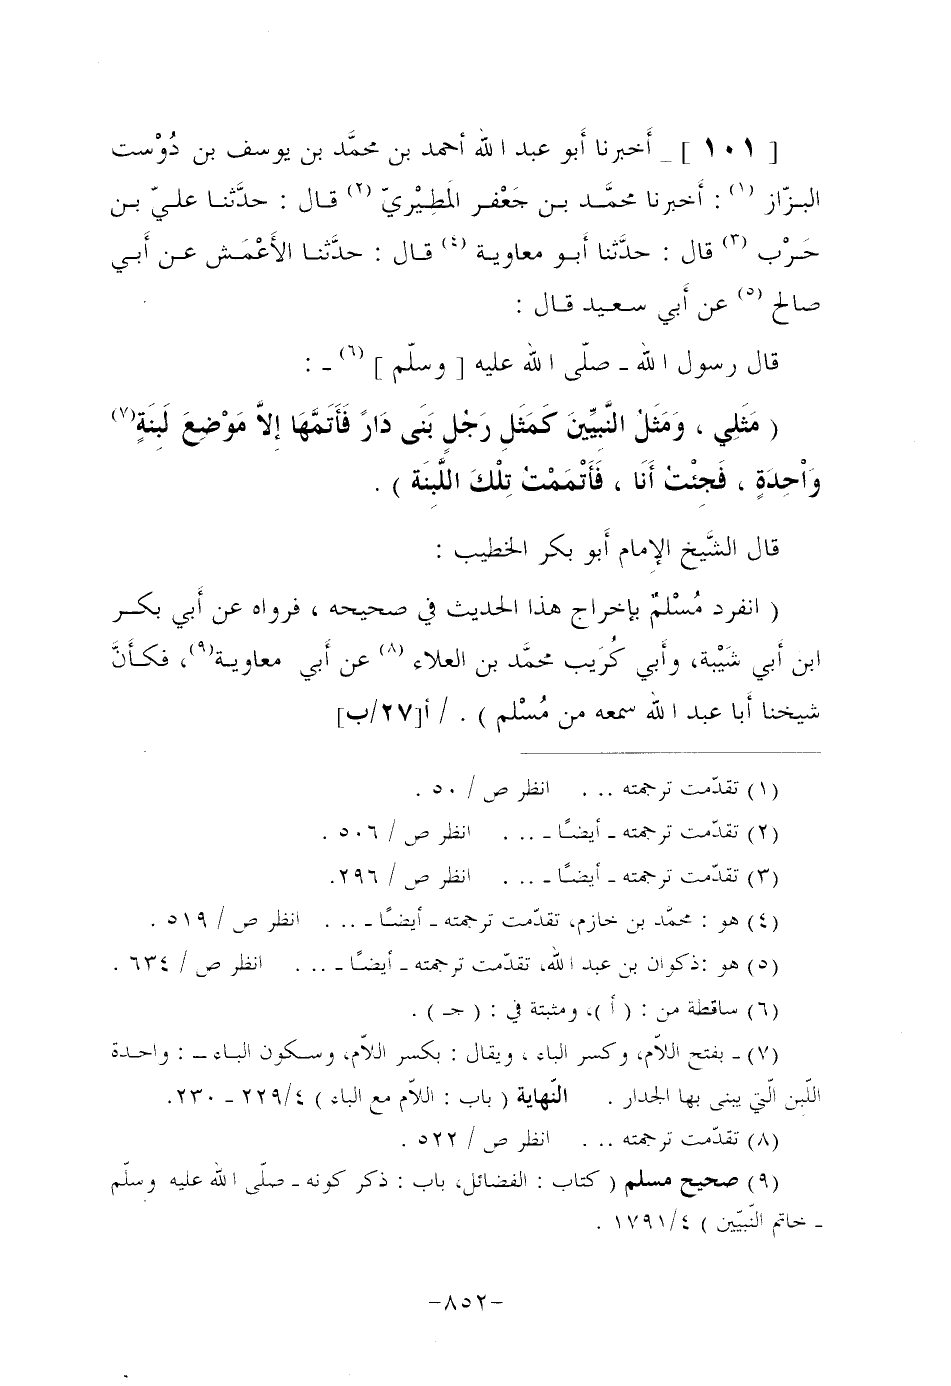 [ ١٠١ ] _ أَخبرنا أَبو عبد الله أحمد بن محمَّد بن يوسف بن دُوْست
البزّاز (١) : أَخبرنا محمَّد بن جَعْفر المَطِيْريّ (٢) قال : حدَّثنا عليّ بن
حَرْب (٣) قال : حدَّثنا أَبو معاوية (٤) قال : حدَّثنا الأَعْمَش عن أَبي
صالح (٥) عن أَبي سعيد قال :
قال رسول الله ـ صلّى الله عليه [ وسلّم ] (٦) ـ :
( مَثَلِي ، وَمَثَلُ النَّبِيِّينَ كَمَثَلِ رَجُلٍ بَنَى دَارً فَأَتَمَّهَا إلاَّ مَوْضِعَ لَبِنَةٍ(٧)
وَاْحِدَةٍ ، فَجِئْتُ أَنَا ، فَأَتْمَمْتُ تِلْكَ اللَّبِنَة ) .
قال الشَّيخ الإمام أَبو بكر الخطيب :
( انفرد مُسْلمٌ بإخراج هذا الحديث في صحيحه ، فرواه عن أَبي بكر
ابن أَبي شَيْبة، وأَبي كُرَيب محمَّد بن العلاء (٨) عن أَبي معاوية(٩)، فكأَنَّ
شيخنا أَبا عبد الله سمعه من مُسْلم ) . / أ[٢٧/ب]
(١) تقدّمت ترجمته .. . انظر ص / ٥٠ .
(٢) تقدّمت ترجمته ـ أيضًا ـ .. . انظر ص / ٥٠٦ .
(٣) تقدّمت ترجمته ـ أيضًا ـ .. . انظر ص / ٢٩٦.
(٤) هو : محمّد بن خازم، تقدّمت ترجمته ـ أيضًا ـ .. . انظر ص / ٥١٩ .
(٥) هو :ذكوان بن عبد الله، تقدّمت ترجمته ـ أيضًا ـ .. . انظر ص / ٦٣٤ .
(٦) ساقطة من : ( أ )، ومثبتة في : ( جـ ) .
(٧) ـ بفتح اللاّم، وكسر الباء ، ويقال : بكسر اللاّم، وسكون الباء ـ : واحدة
اللّبن الّتي يبنى بها الجدار . النّهاية ( باب : اللاّم مع الباء ) ٢٢٩/٤ ـ ٢٣٠.
(٨) تقدّمت ترجمته .. . انظر ص / ٥٢٢ .
(٩) صحيح مسلم ( كتاب : الفضائل، باب : ذكر كونه ـ صلّى الله عليه وسلّم
ـ خاتم النّبيّين ) ١٧٩١/٤ .
-٨٥٢-